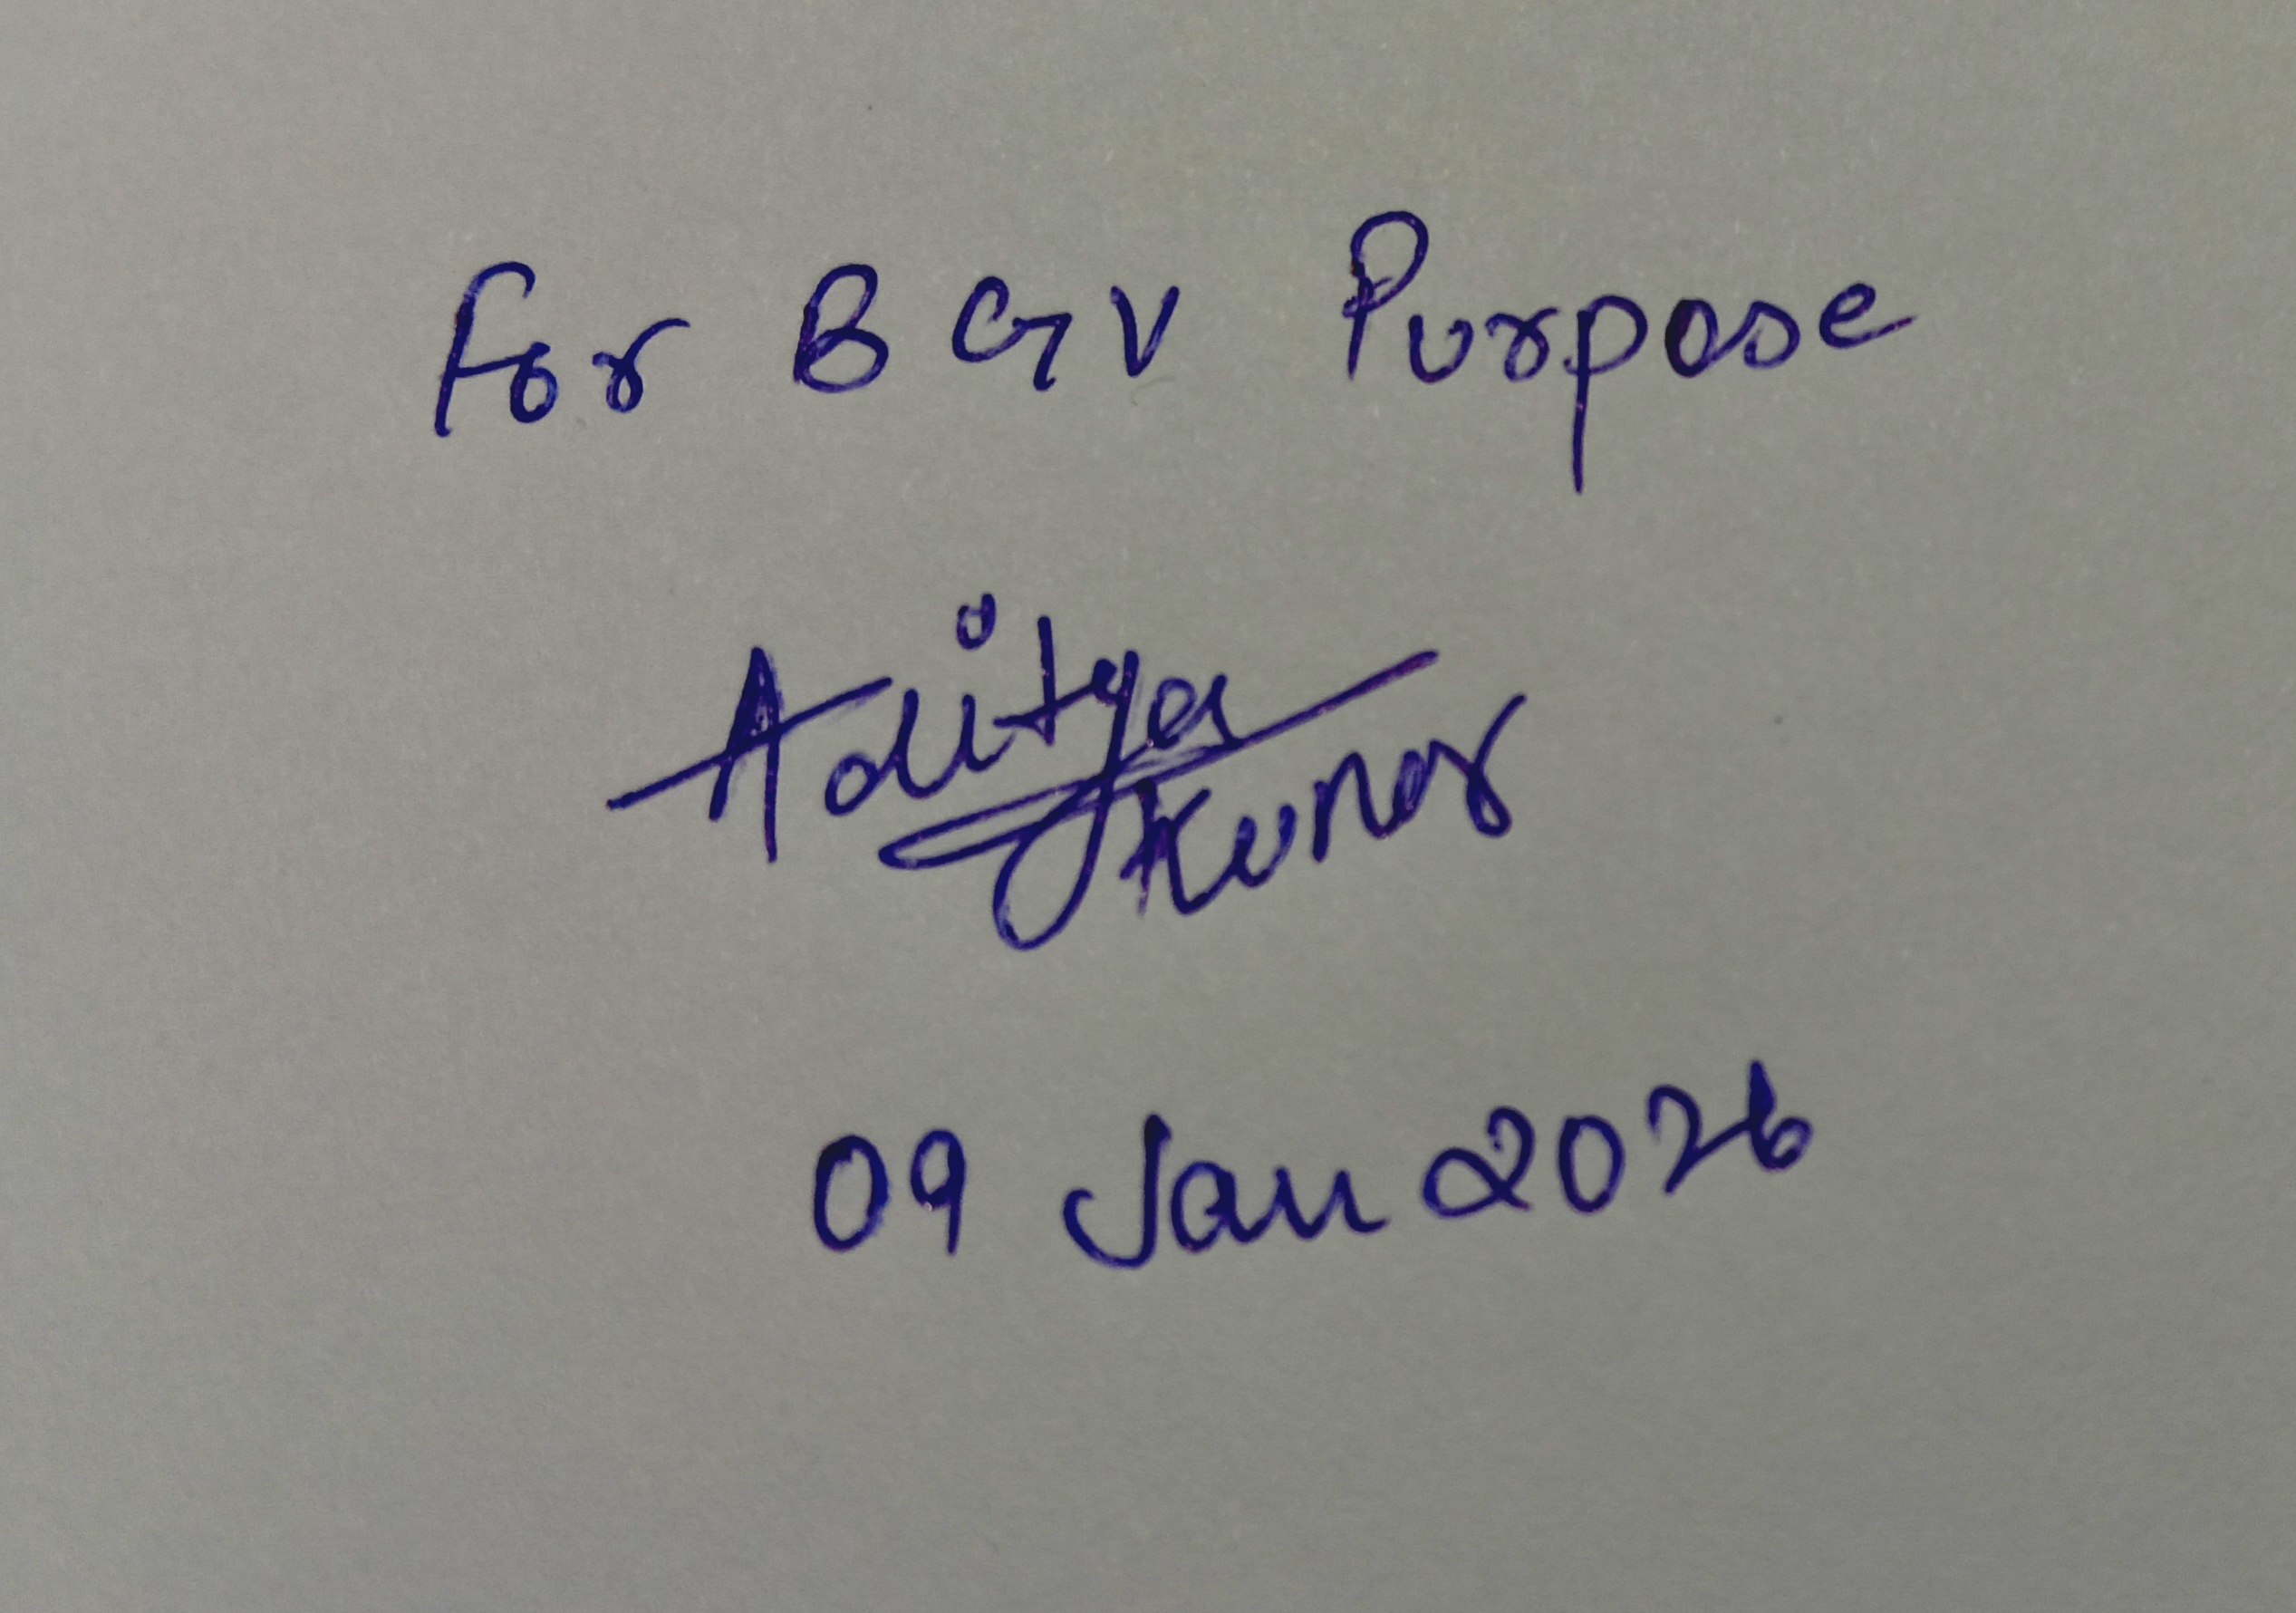 For BGV Purpose
Aditya
Kumar
09 Jan 2026